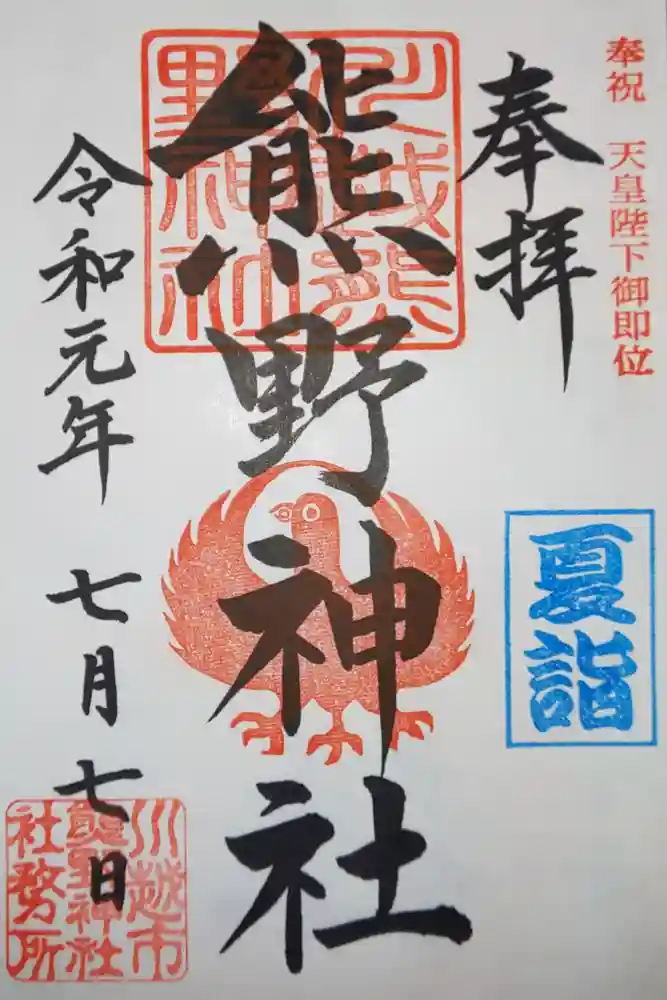 奉祝 天皇陛下御即位
奉拝
夏詣
川越熊
野神社
熊野神社
令和元年 七月七日
川越市
熊野神社
社務所